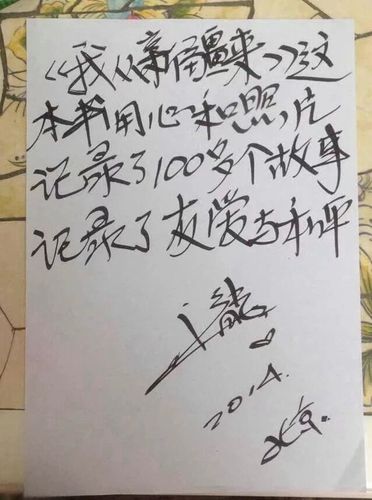 《我从新疆来》这
本书用心和照片
记录了100多个故事
记录了友爱与和平
2014.
北京.